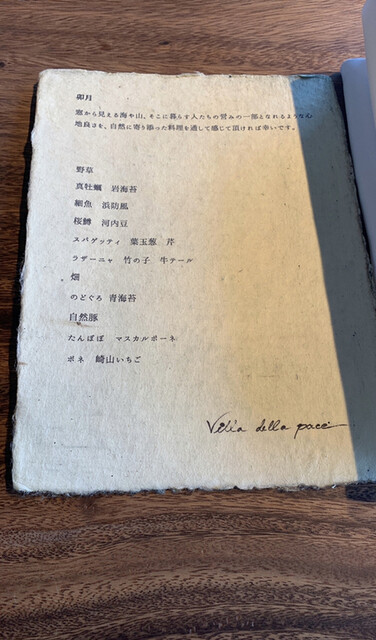 卯月
窓から見える海や山、そこに暮らす人たちの営みの一部となれるような心
地良さを、自然に寄り添った料理を通して感じて頂ければ幸いです。
野草
真牡蠣 岩海苔
細魚 浜防風
桜鱒 河内豆
スパゲッティ 葉玉葱 芹
ラザーニャ 竹の子 牛テール
畑
のどぐろ 青海苔
自然豚
たんぽぽ マスカルポーネ
ボネ 崎山いちご
Villa della pace